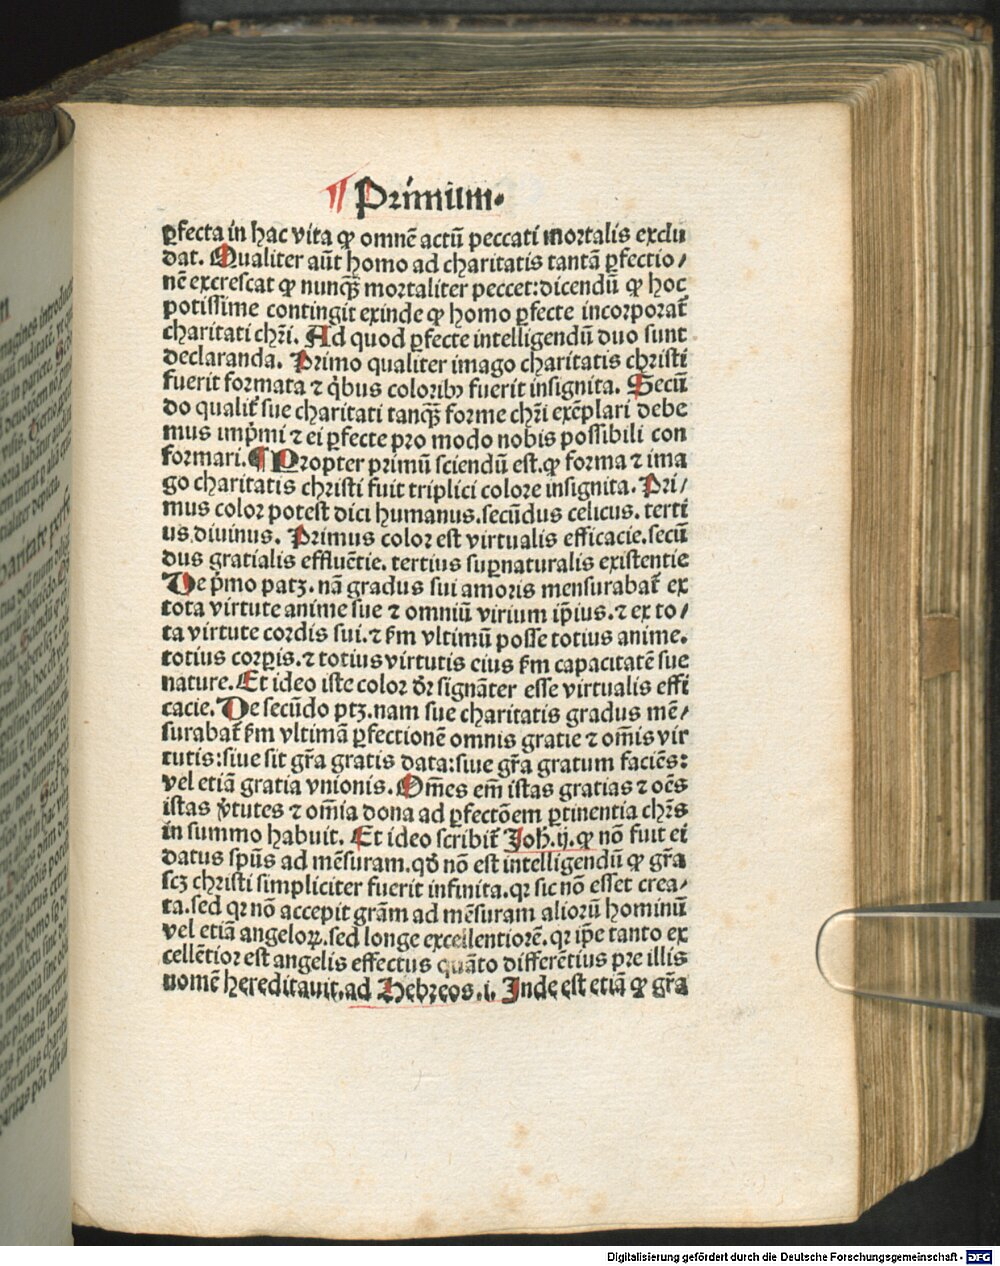 ¶ Primum.
ꝑfecta in hac vita ꝙ omnē actū peccati mortalis exclu
dat. Qualiter aūt homo ad charitatis tantā ꝑfectio/
nē excrescat ꝙ nunqꝫ mortaliter peccet: dicendū ꝙ hoc
potissime contingit exinde ꝙ homo ꝑfecte incorporat̄
charitati chr̄i. Ad quod ꝑfecte intelligendū duo sunt
declaranda. Primo qualiter imago charitatis christi
fuerit formata ⁊ qͥbus coloribꝰ fuerit insignita. Secū
do qualit̄ sue charitati tanqꝫ forme chr̄i exēplari debe
mus impͥmi ⁊ ei ꝑfecte pro modo nobis possibili con
formari. ¶ Propter primū sciendū est. ꝙ forma ⁊ ima
go charitatis christi fuit triplici colore insignita. Pri/
mus color potest dici humanus. secūdus celicus. terti
us divinus. Primus color est virtualis efficacie. secū
dus gratialis effluētie. tertius suꝑnaturalis existentie
De pͥmo patꝫ. nā gradus sui amoris mensurabat̄ ex
tota virtute anime sue ⁊ omniū virium ip̄ius. ⁊ ex to/
ta virtute cordis sui. ⁊ ẜm vltimū posse totius anime.
totius corꝑis. ⁊ totius virtutis eius ẜm capacitatē sue
nature. Et ideo iste color dr̄ signāter esse virtualis effi
cacie. De secūdo ptꝫ. nam sue charitatis gradus mē/
surabat̄ ẜm vltimā ꝑfectionē omnis gratie ⁊ om̄is vir
tutis: siue sit gr̄a gratis data: siue gr̄a gratum faciēs:
vel etiā gratia vnionis. Om̄es em̄ istas gratias ⁊ oēs
istas v̓tutes ⁊ om̄ia dona ad ꝑfectōem ꝑtinentia chr̄s
in summo habuit. Et ideo scribit̄ Joh̄. ij. ꝙ nō fuit ei
datus spūs ad mēsuram. qđ nō est intelligendū ꝙ gr̄a
scꝫ christi simpliciter fuerit infinita. qꝛ sic nō esset crea/
ta. sed qꝛ nō accepit grām ad mēsuram aliorū hominū
vel etiā angeloꝝ. sed longe excellentiorē. qꝛ ip̄e tanto ex
cellētior est angelis effectus quāto differētius pre illis
nomē hereditauit. ad Hebreos. i. Inde est etiā ꝙ gr̄a
Digitalisierung gefördert durch die Deutsche Forschungsgemeinschaft - DFG